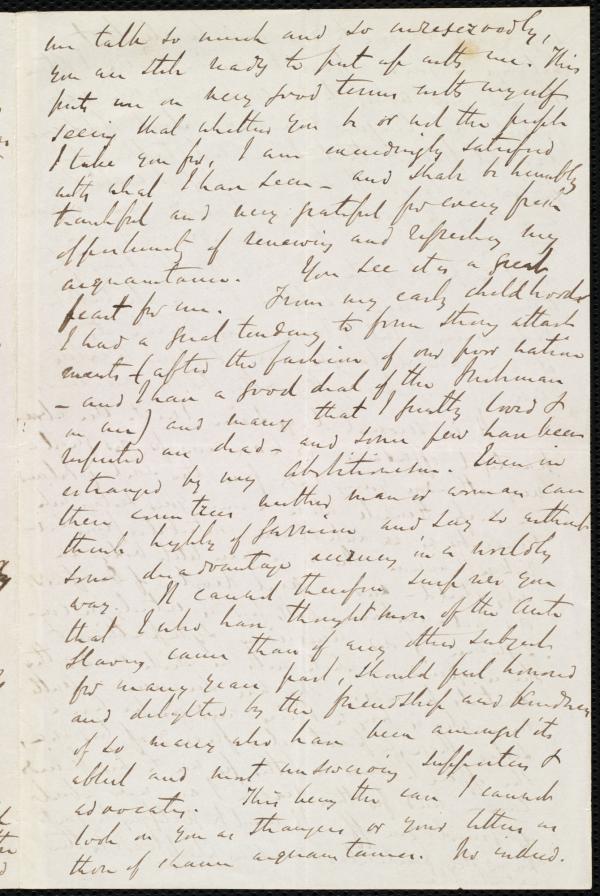 me talk so much and so unreservedly,
you are still ready to put up with me. This
puts me on very good terms with myself
seeing that whether you be or not the people
I take you for, I am exceedingly satisfied
with what I have seen – and shall be humbly
thankful and very grateful for every fresh
opportunity of renewing and refreshing my
acquaintance. You see it is a great
feast for me. From my early childhood
I had a great tendency to form strong attach
ments (after the fashion of our poor nation
– and I have a good deal of the Irishman
in me) and many that I greatly loved &
respected are dead – and some few have been
estranged by my abolitionism. Even in
these countries neither man or woman can
think highly of Garrison and say so without
some disadvantage accruing in a worldly
way. It cannot therefore surprise you
that I who have thought more of the Anti
Slavery cause than of any other subject
for many years past, should feel honored
and delighted by the friendship and kindness
of so many who have been amongst its
ablest and most unswerving supporters &
advocates. This being the case I cannot
look on you as strangers or your letters as
those of chance acquaintances. No indeed.